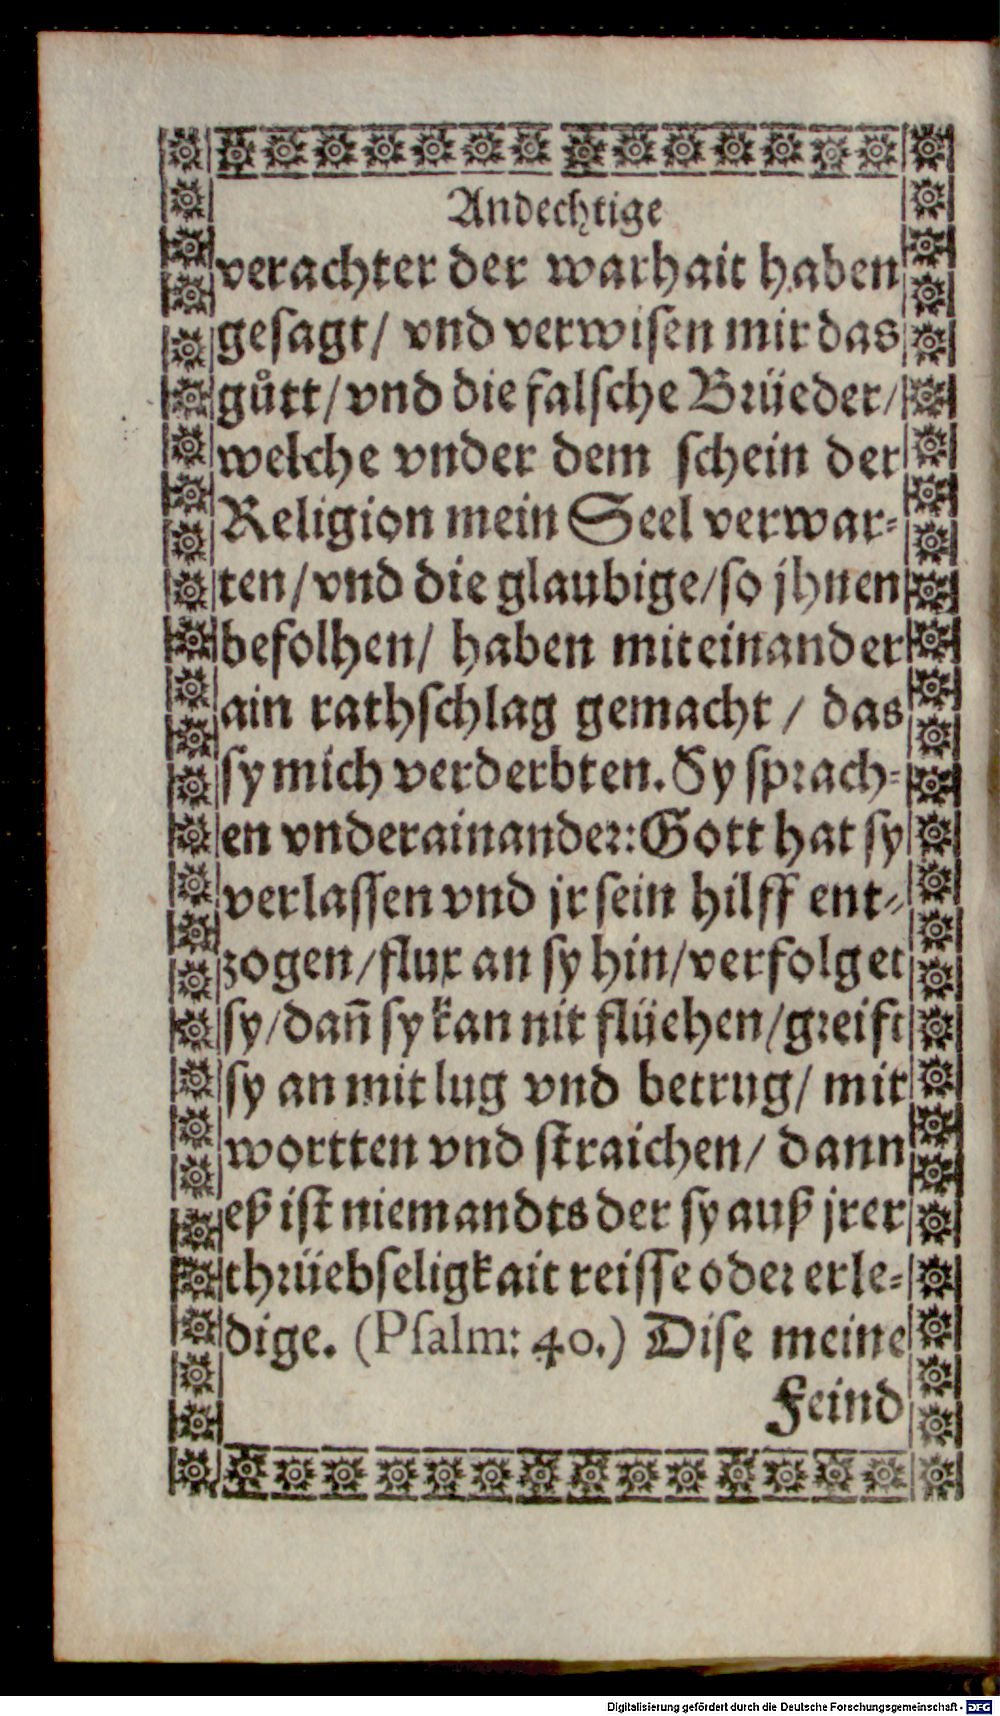 Andechtige
verachter der warhait haben
gesagt/ vnd verwisen mir das
gůtt/ vnd die falsche Brüeder/
welche vnder dem schein der
Religion mein Seel verwar-
ten/ vnd die glaubige/ so jhnen
befolhen/ haben miteinander
ain rathschlag gemacht/ das
sy mich verderbten. Sy sprach-
en vnderainander: Gott hat sy
verlassen vnd jr sein hilff ent-
zogen/ flux an sy hin/ verfolget
sy/ dañ sy kan nit flüehen/ greift
sy an mit lug vnd betrug/ mit
wortten vnd straichen/ dann
eß ist niemandts der sy auß jrer
thrüebseligkait reisse oder erle-
dige. (Psalm: 40.) Dise meine
Feind
Digitalisierung gefördert durch die Deutsche Forschungsgemeinschaft - DFG